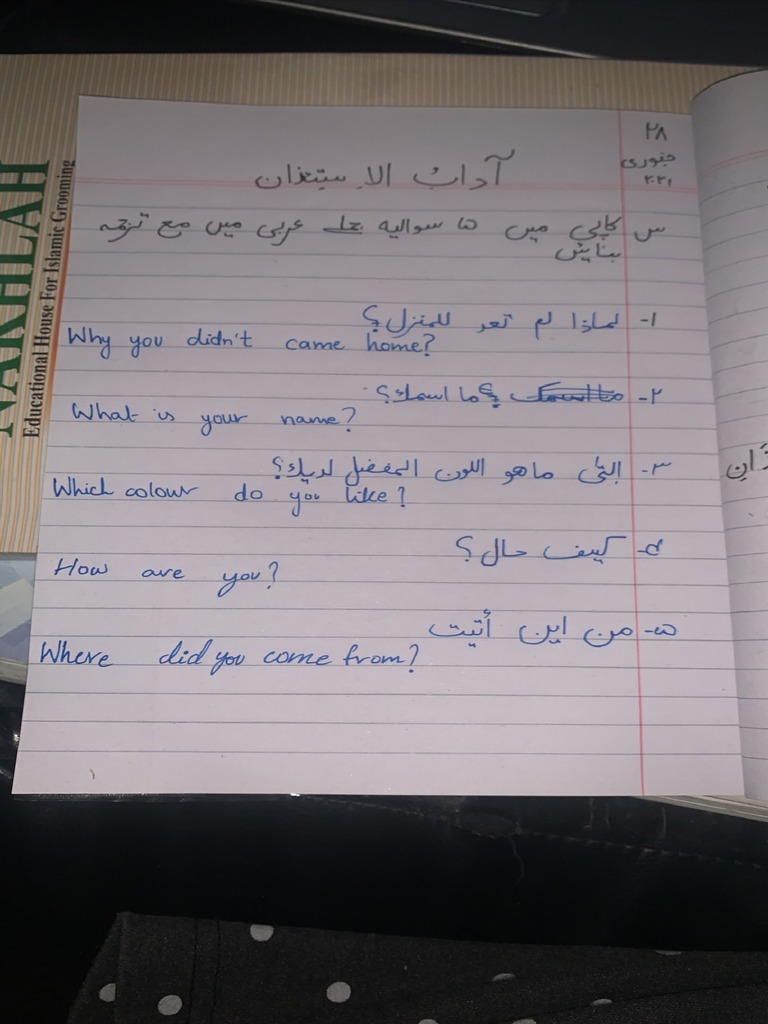 NAKHLAH
Educational House For Islamic Grooming
٢٨
جنوری
٢٠٢١
آدابُ الاِستئذان
س کاپی میں ۵ سوالیہ جملے عربی میں مع ترجمہ
بنایئں
١- لماذا لم تعد للمنزل؟
Why you didn't came home?
٢- ما اسمك؟
What is your name?
٣- التی ماهو اللون المفضل لديك؟
Which colour do you like?
٤- كيف حال؟
How are you?
٥- من اين أتيت
Where did you come from?